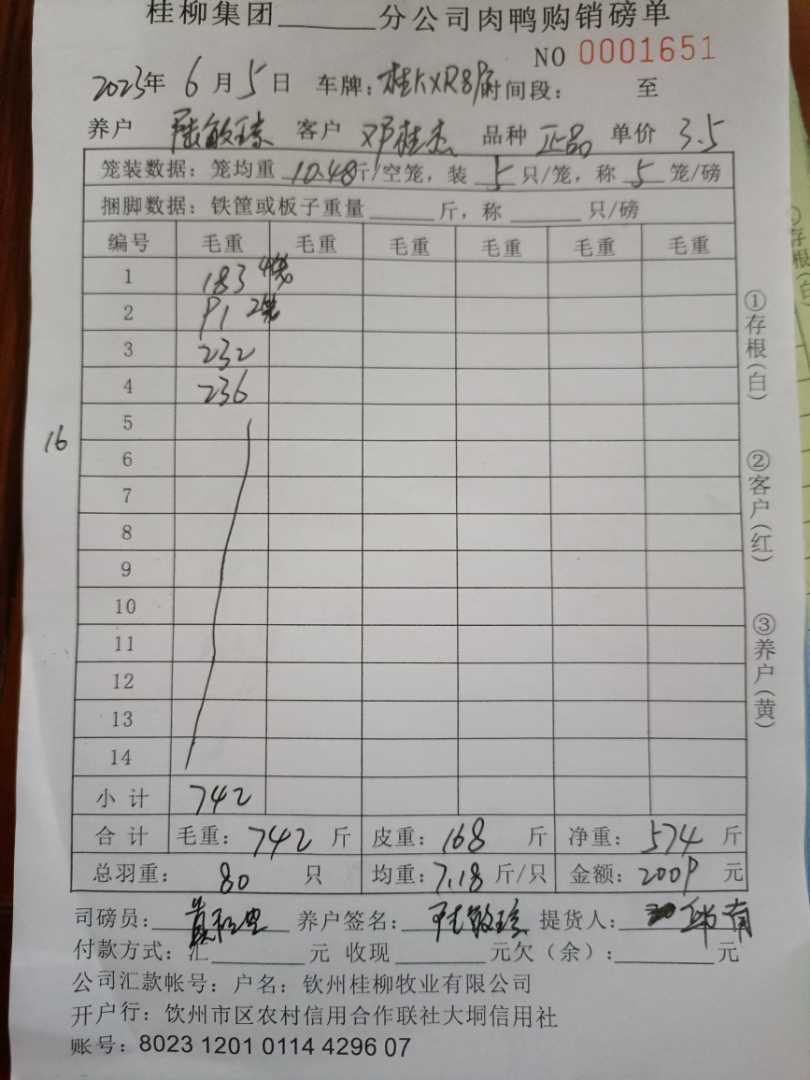 桂柳集团______分公司肉鸭购销磅单
NO 0001651
2023年 6月5日 车牌: 桂KXR8 时间段: 至
养户 陆敏 客户 邓桂杰 品种 正品 单价 3.5
笼装数据: 笼均重 10.48斤/空笼, 装 5 只/笼, 称 5 笼/磅
捆脚数据: 铁筐或板子重量______斤, 称______只/磅
编号 毛重 毛重 毛重 毛重 毛重 毛重
1 183 4笼
2 91 2笼
3 232
4 236
5
16
6
7
8
9
10
11
12
13
14
小计 742
合计 毛重: 742 斤 皮重: 168 斤 净重: 574 斤
总羽重: 80 只 均重: 7.18 斤/只 金额: 2009 元
司磅员: 养户签名: 陆敏 提货人:
付款方式: 汇______元 收现______元欠(余):______元
公司汇款帐号: 户名: 钦州桂柳牧业有限公司
开户行: 饮州市区农村信用合作联社大垌信用社
账号: 8023 1201 0114 4296 07
①存根(白)
②客户(红)
③养户(黄)
①存根(白)